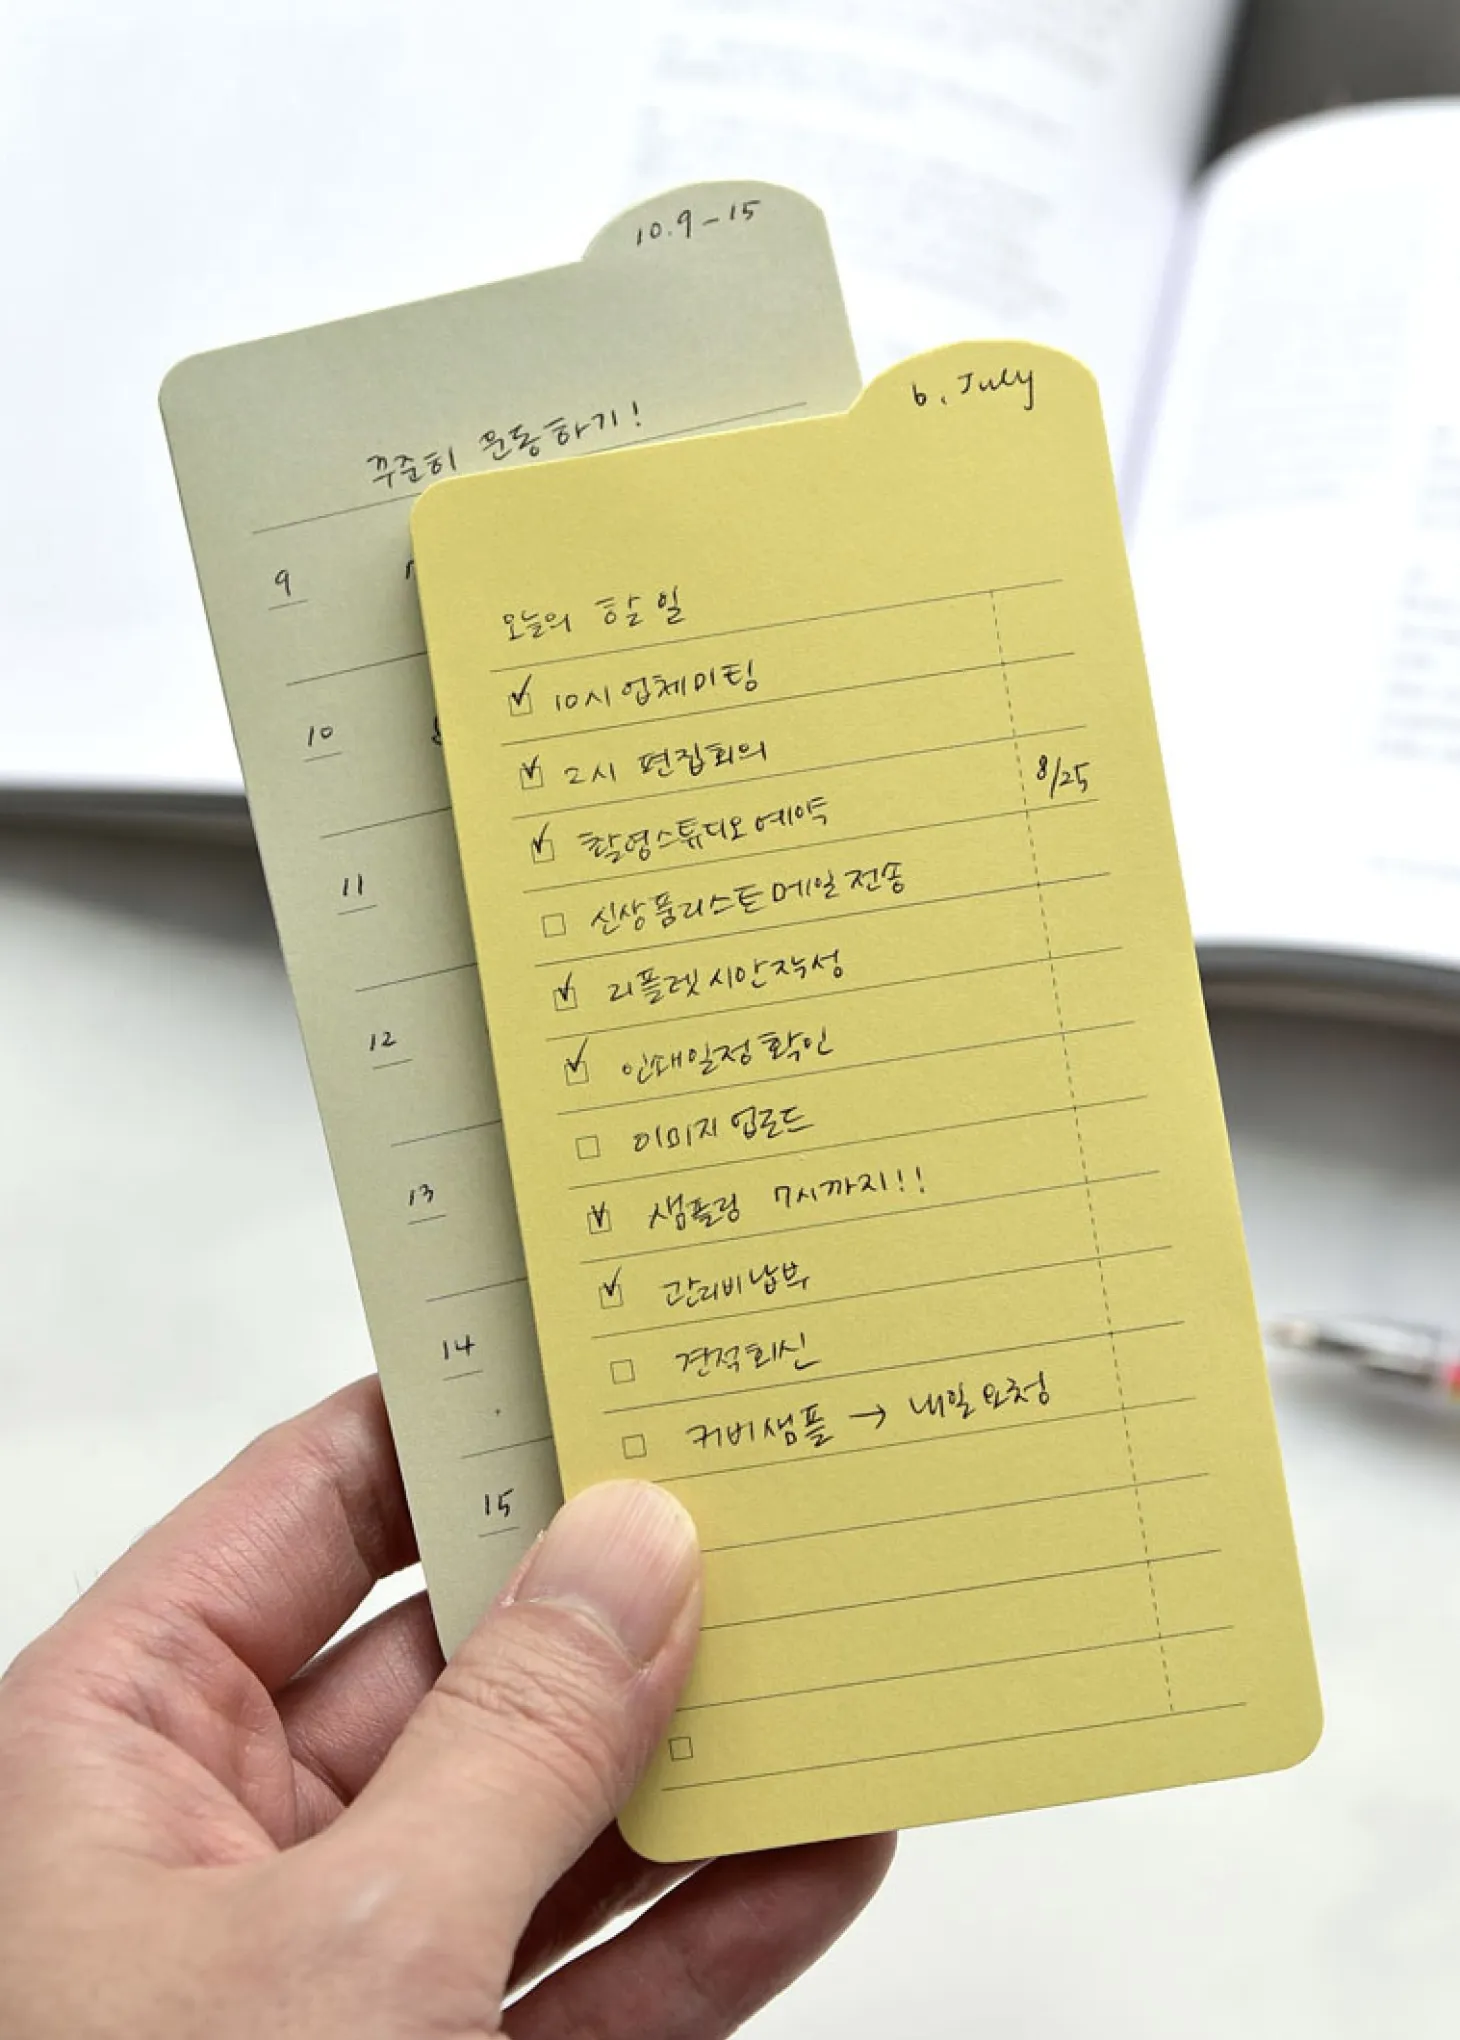 10.9-15
꾸준히 운동하기!
9
10
11
12
13
14
15
6. July
오늘의 할 일
10시 업체미팅
2시 편집회의
촬영스튜디오 예약 8/25
신상품리스트 메일 전송
리플렛 시안작성
인쇄일정 확인
이미지 업로드
샘플링 7시까지!!
관리비 납부
견적회신
커버샘플 → 내일 요청